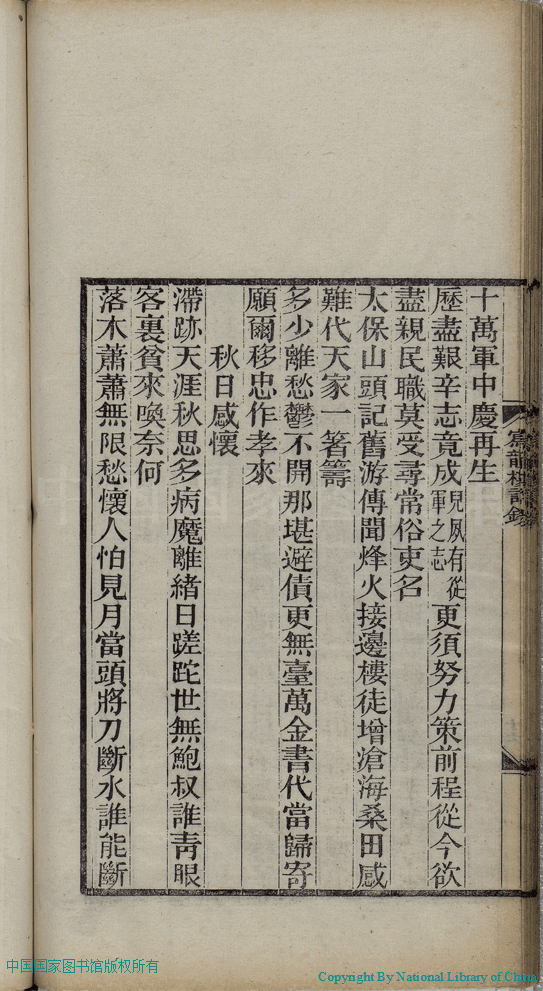 十萬軍中慶再生
歷盡艱辛志竟成兒夙有從軍之志更須努力策前程從今欲
盡親民職莫受尋常俗吏名
太保山頭記舊游傳聞烽火接邊樓徒增滄海桑田感
難代天家一箸籌
多少離愁鬱不開那堪避債更無臺萬金書代當歸寄
願爾移忠作孝來
秋日感懷
滯跡天涯秋思多病魔離緒日蹉跎世無鮑叔誰青眼
客裏貧來喚奈何
落木蕭蕭無限愁懷人怕見月當頭將刀斷水誰能斷
中国国家图书馆版权所有
Copyright By National Library of China